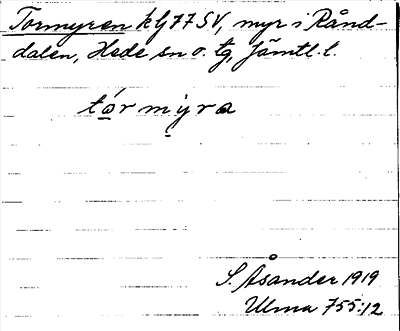 Tormyren kbg 77 SV, myr i Rånd-
dalen, Hede sn o. tg, Jämtl. l.
tórmýra
S. Åsander 1919
Ulma 755:12